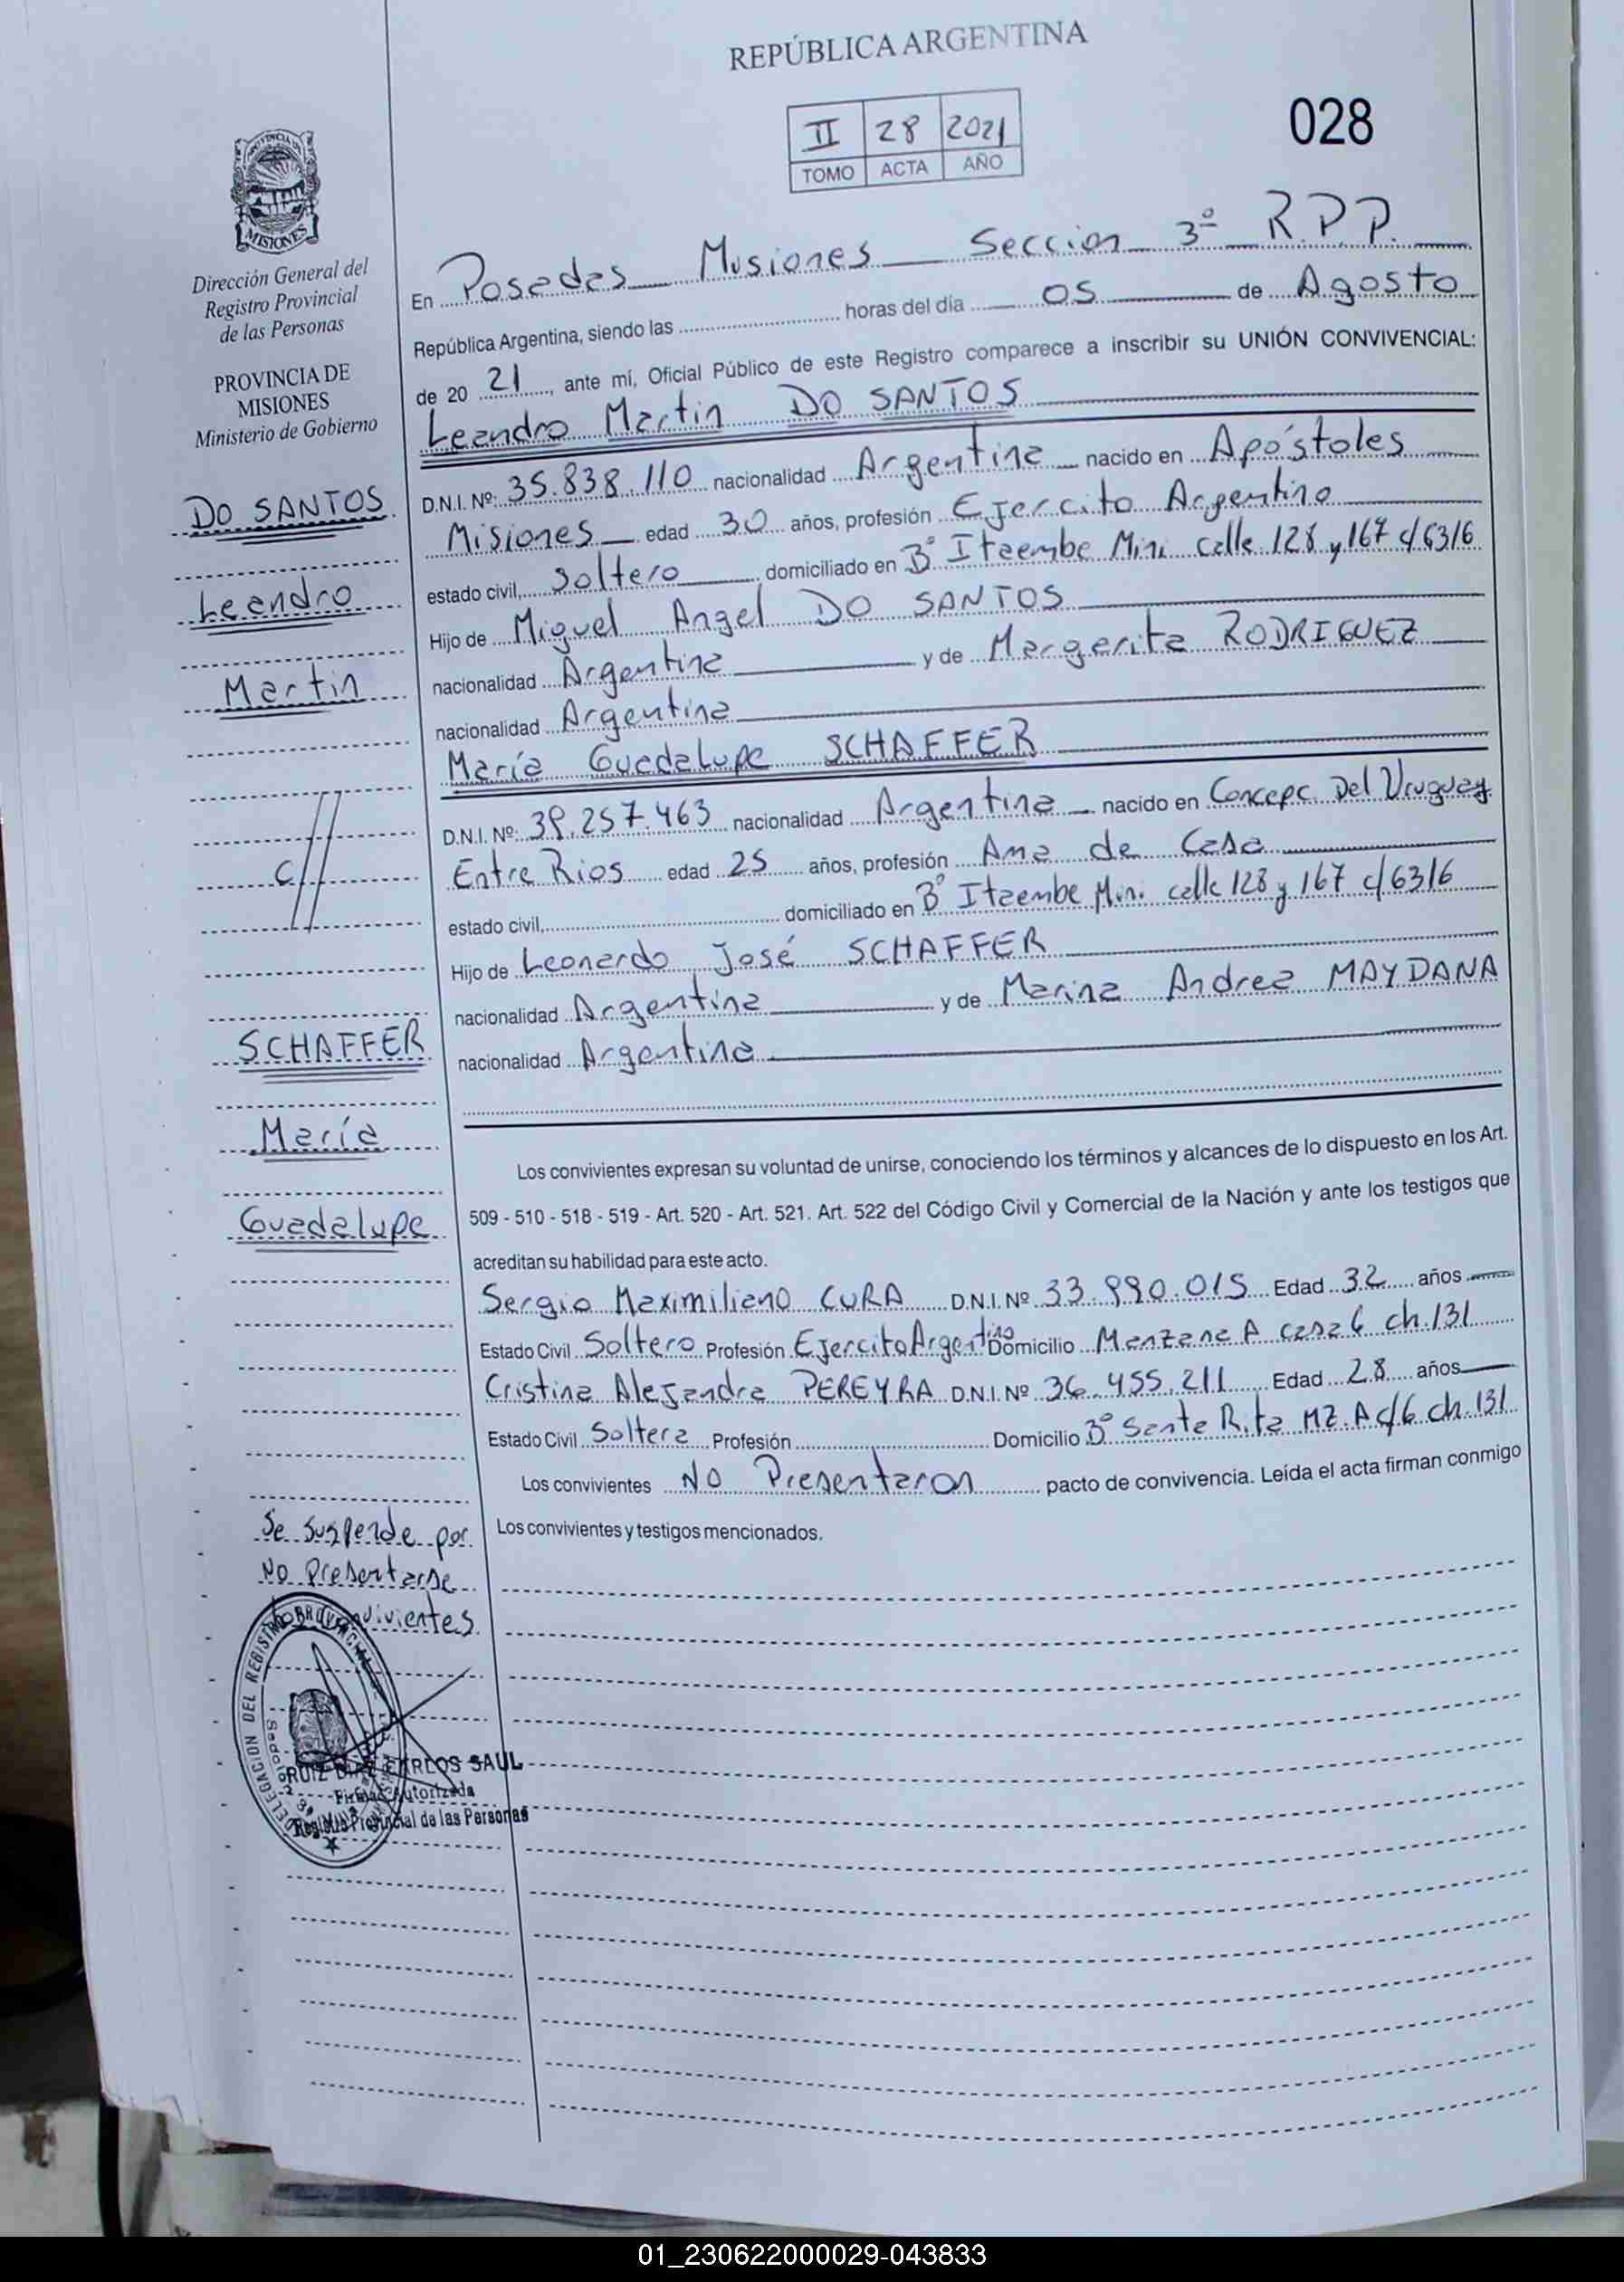 REPÚBLICA ARGENTINA
II 28 2021
TOMO ACTA AÑO
028
MISIONES
Dirección General del
Registro Provincial
de las Personas
PROVINCIA DE
MISIONES
Ministerio de Gobierno
DO SANTOS
Leandro
Martin
C//
SCHAFFER
María
Guadalupe
Se suspende por
No Presentarse
convivientes.
DELEGACION DEL REGISTRO PROVINCIAL
RUIZ DIAZ CARLOS SAUL
Firma Autorizada
Registro Provincial de las Personas
En Posadas Misiones Seccion 3º R.P.P.
República Argentina, siendo las horas del día 05 de Agosto
de 20 21, ante mí, Oficial Público de este Registro comparece a inscribir su UNIÓN CONVIVENCIAL:
Leandro Martin DO SANTOS
D.N.I. Nº: 35.838.110 nacionalidad Argentina nacido en Apóstoles
Misiones edad 30 años, profesión Ejercito Argentino
estado civil, Soltero domiciliado en Bº Itaembe Mini calle 128 y 167 c/6316
Hijo de Miguel Angel DO SANTOS
nacionalidad Argentina y de Margarita RODRIGUEZ
nacionalidad Argentina
María Guadalupe SCHAFFER
D.N.I. Nº: 39.257.463 nacionalidad Argentina nacido en Concepc. Del Uruguay
Entre Rios edad 25 años, profesión Ama de Casa
estado civil, domiciliado en Bº Itaembe Mini calle 128 y 167 c/6316
Hijo de Leonardo José SCHAFFER
nacionalidad Argentina y de Marina Andrea MAYDANA
nacionalidad Argentina
Los convivientes expresan su voluntad de unirse, conociendo los términos y alcances de lo dispuesto en los Art.
509 - 510 - 518 - 519 - Art. 520 - Art. 521. Art. 522 del Código Civil y Comercial de la Nación y ante los testigos que
acreditan su habilidad para este acto.
Sergio Maximiliano CURA D.N.I. Nº 33.990.015 Edad 32 años
Estado Civil Soltero Profesión Ejercito Argentino Domicilio Manzana A casa 6 ch.131
Cristina Alejandra PEREYRA D.N.I. Nº 36.455.211 Edad 28 años
Estado Civil Soltera Profesión Domicilio Bº Santa Rita MZ.A c/6 ch.131
Los convivientes No Presentaron pacto de convivencia. Leída el acta firman conmigo
Los convivientes y testigos mencionados.
01_230622000029-043833